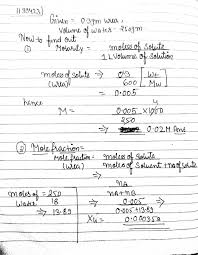 Given = 0.3gm urea,
Volume of water = 250gm
Now to find out
① Molarity = moles of solute
1 L Volume of solution
moles of solute → 0.3 [Wt
(urea) 60 Mw]
= 0.005
hence
M = 0.005 × 1000
250
→ 0.02M Ans
② Molefraction =
Mole fraction = moles of solute
(urea) moles of Solvent + no of solute
nA
nA+nB
moles of = 250
water 18
→ 13.89
→ 0.005
0.005+13.89